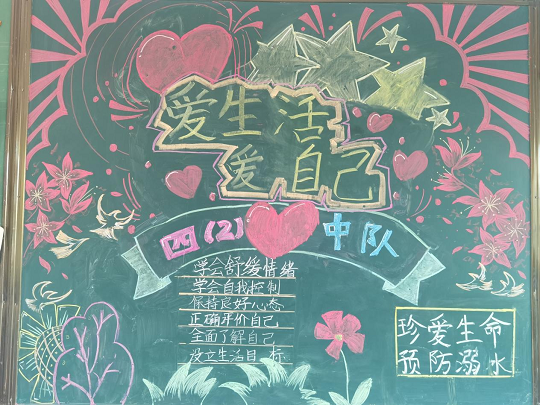 爱生活
爱自己
四(2)中队
学会舒缓情绪
学会自我控制
保持良好心态
正确评价自己
全面了解自己
设立生活目标
珍爱生命
预防溺水